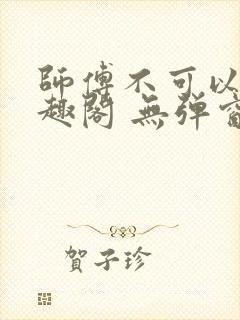 師傅不可以
趣閣 無彈窗
賀子珍